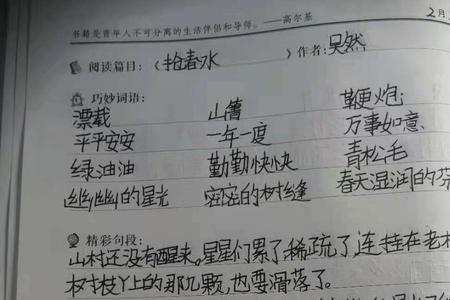 书籍是青年人不可分离的生活伴侣和导师。——高尔基
2月
阅读篇目：《抢春水》作者：吴然
巧妙词语：
漂载 山箐 鞭炮
平平安安 一年一度 万事如意
绿油油 勤勤快快 青松毛
幽幽的星光 密密的树缝 春天湿润的芬
精彩句段：
山村还没有醒来。星星们累了稀疏了，连挂在老
树枝丫上的那几颗，也要滑落了。